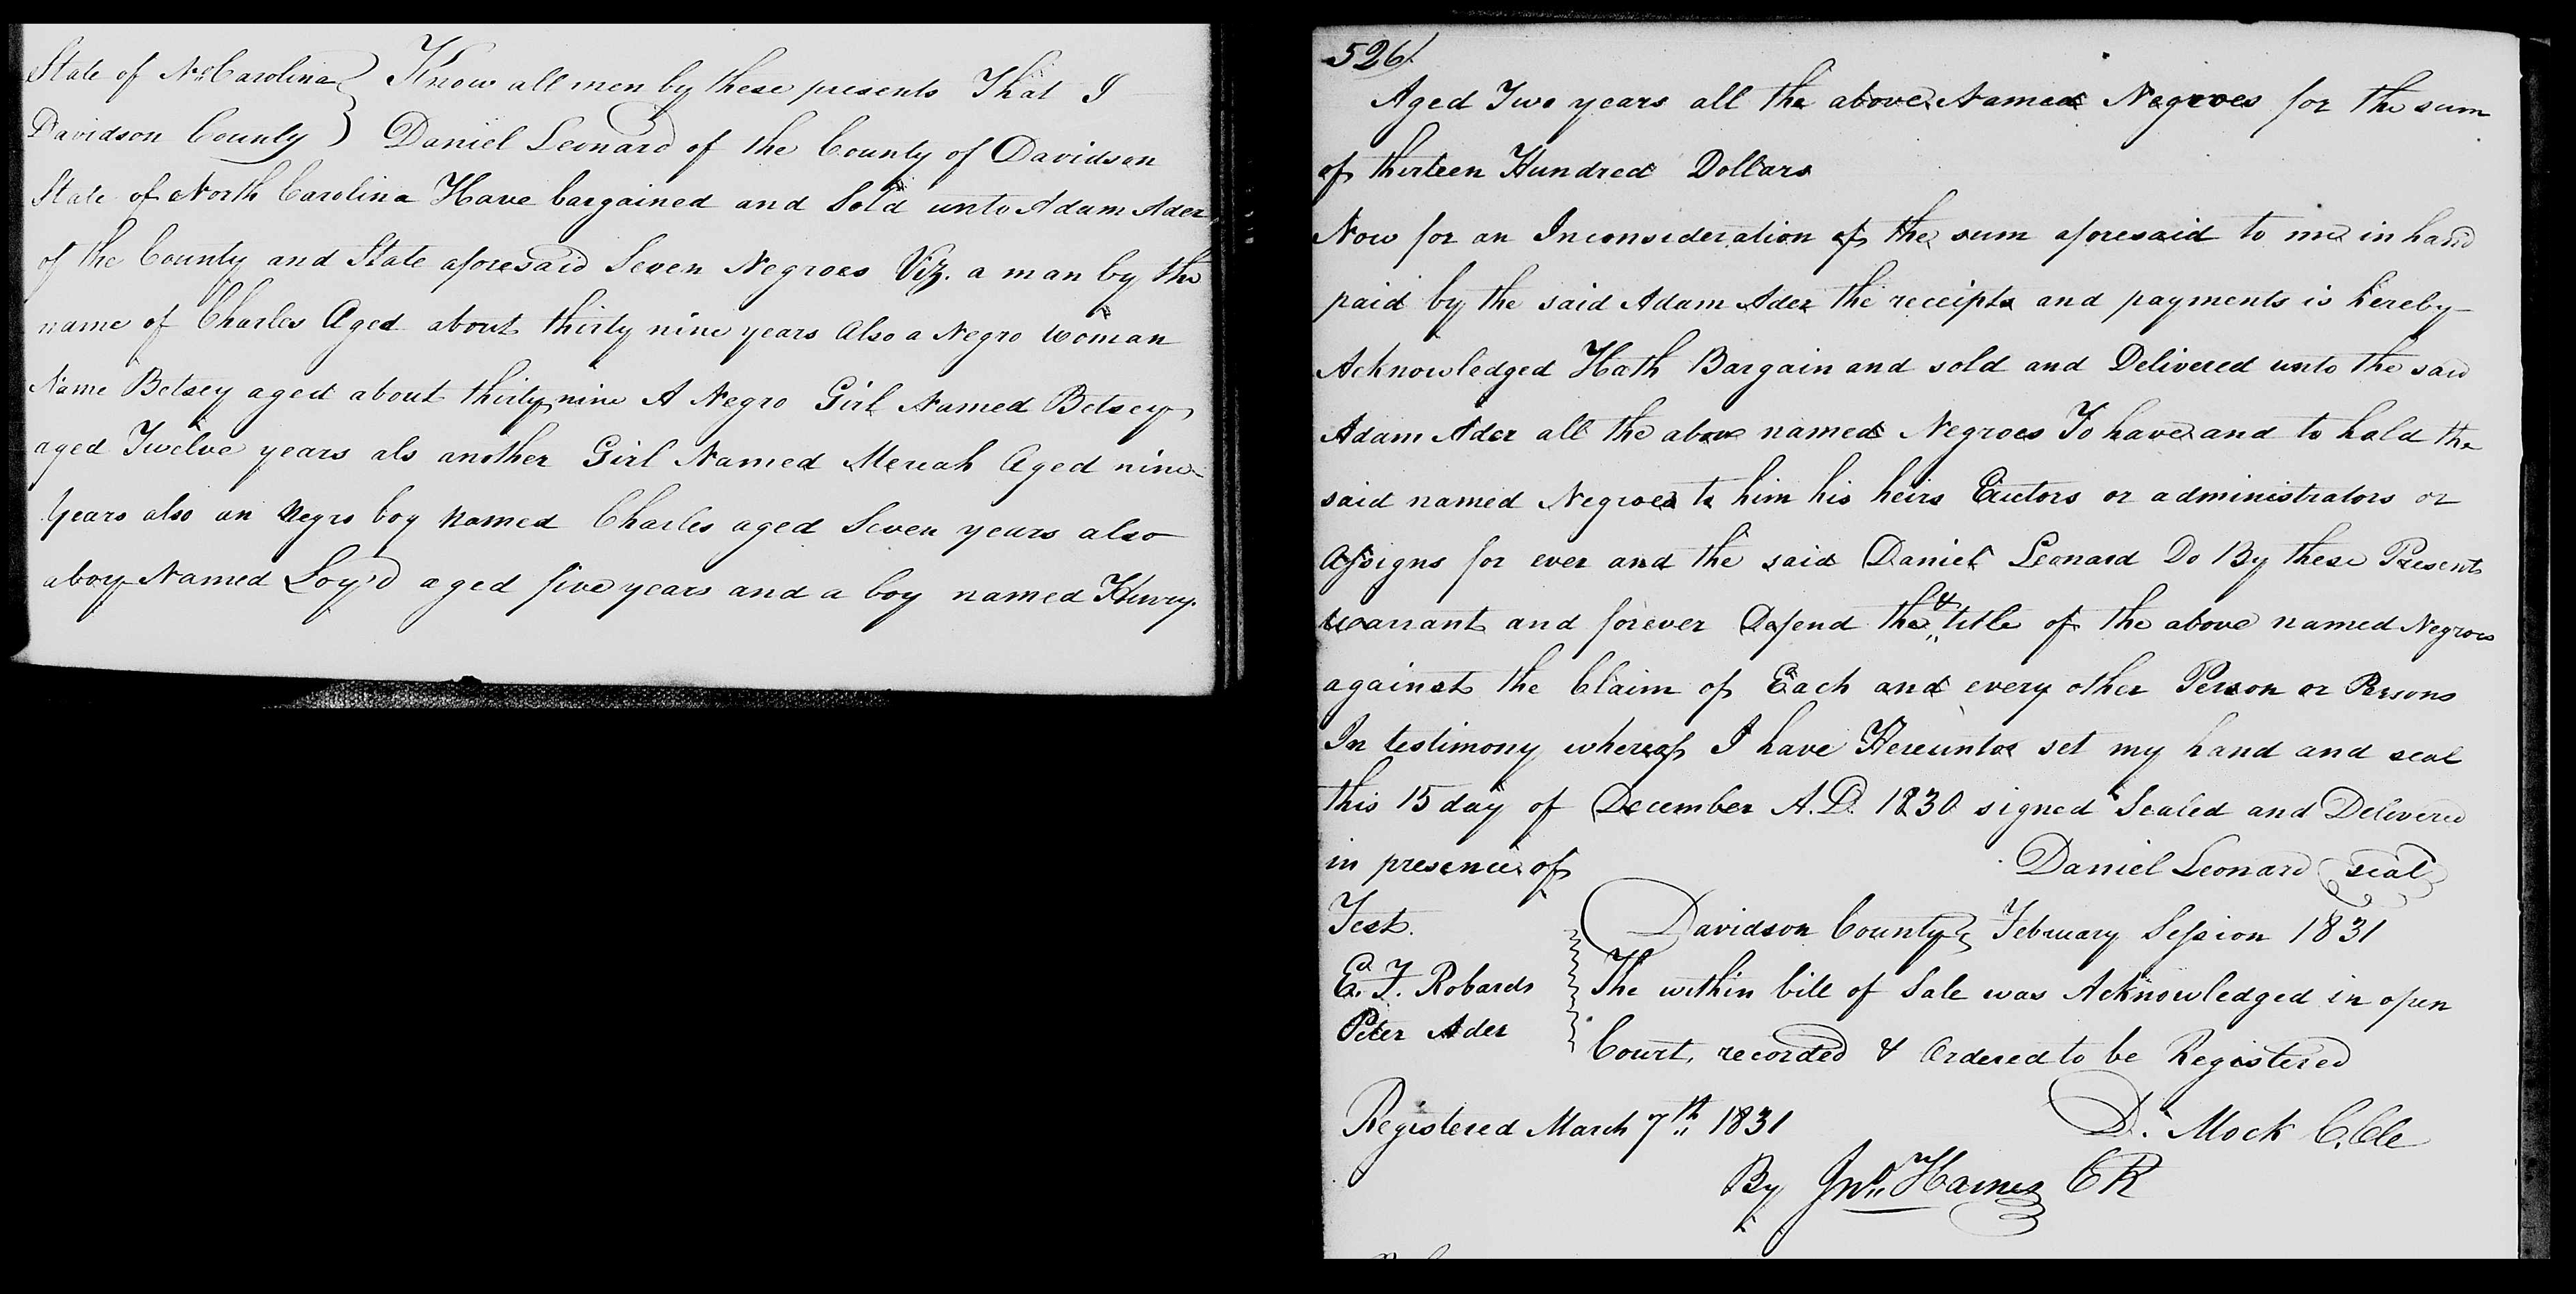 State of No Carolina } Know all men by these presents That I
Davidson County } Daniel Leonard of the County of Davidson
State of North Carolina Have bargained and Sold unto Adam Ader
of the County and State aforesaid Seven Negroes Viz. a man by the
name of Charles Aged about thirty nine years Also a Negro woman
Name Betsey aged about thirty nine A Negro Girl Named Betsey
aged Twelve years als another Girl Named Meriah Aged nine
years also an Negro boy Named Charles aged Seven years also
aboy Named Loy'd aged five years and a boy named Henry.
526
Aged Two years all the above Named Negroes for the sum
of thirteen Hundred Dollars
Now for an Inconsideration of the sum aforesaid to me in hand
paid by the said Adam Ader the receipts and payments is hereby
Acknowledged Hath Bargain and sold and Delivered unto the said
Adam Ader all the above named Negroes To have and to hold the
said named Negroes to him his heirs Exctors or administrators or
Assigns for ever and the said Daniel Leonard Do By these Presents
warrant and forever Defend the & title of the above named Negroes
against the Claim of Each and every other Person or Persons
In testimony whereof I have Hereunto set my hand and seal
this 15 day of December A.D. 1830 signed Sealed and Delivered
in presence of
Daniel Leonard seal
Test.
E. F. Robards
Peter Ader
Davidson County } February Session 1831
The within bill of Sale was Acknowledged in open
Court, recorded & Ordered to be Registered
Registered March 7th 1831
D. Mock C. Cle
By Jno. Harnes CR